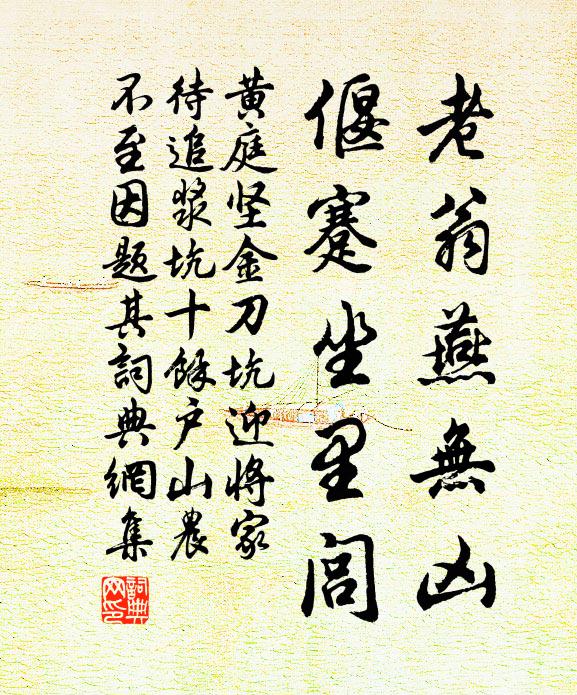 老翁燕無凶
偃蹇坐里閭
黄庭坚金刀坑迎将家
待追漿坑十餘户山農
不至因題其詞典網集
詞典網印